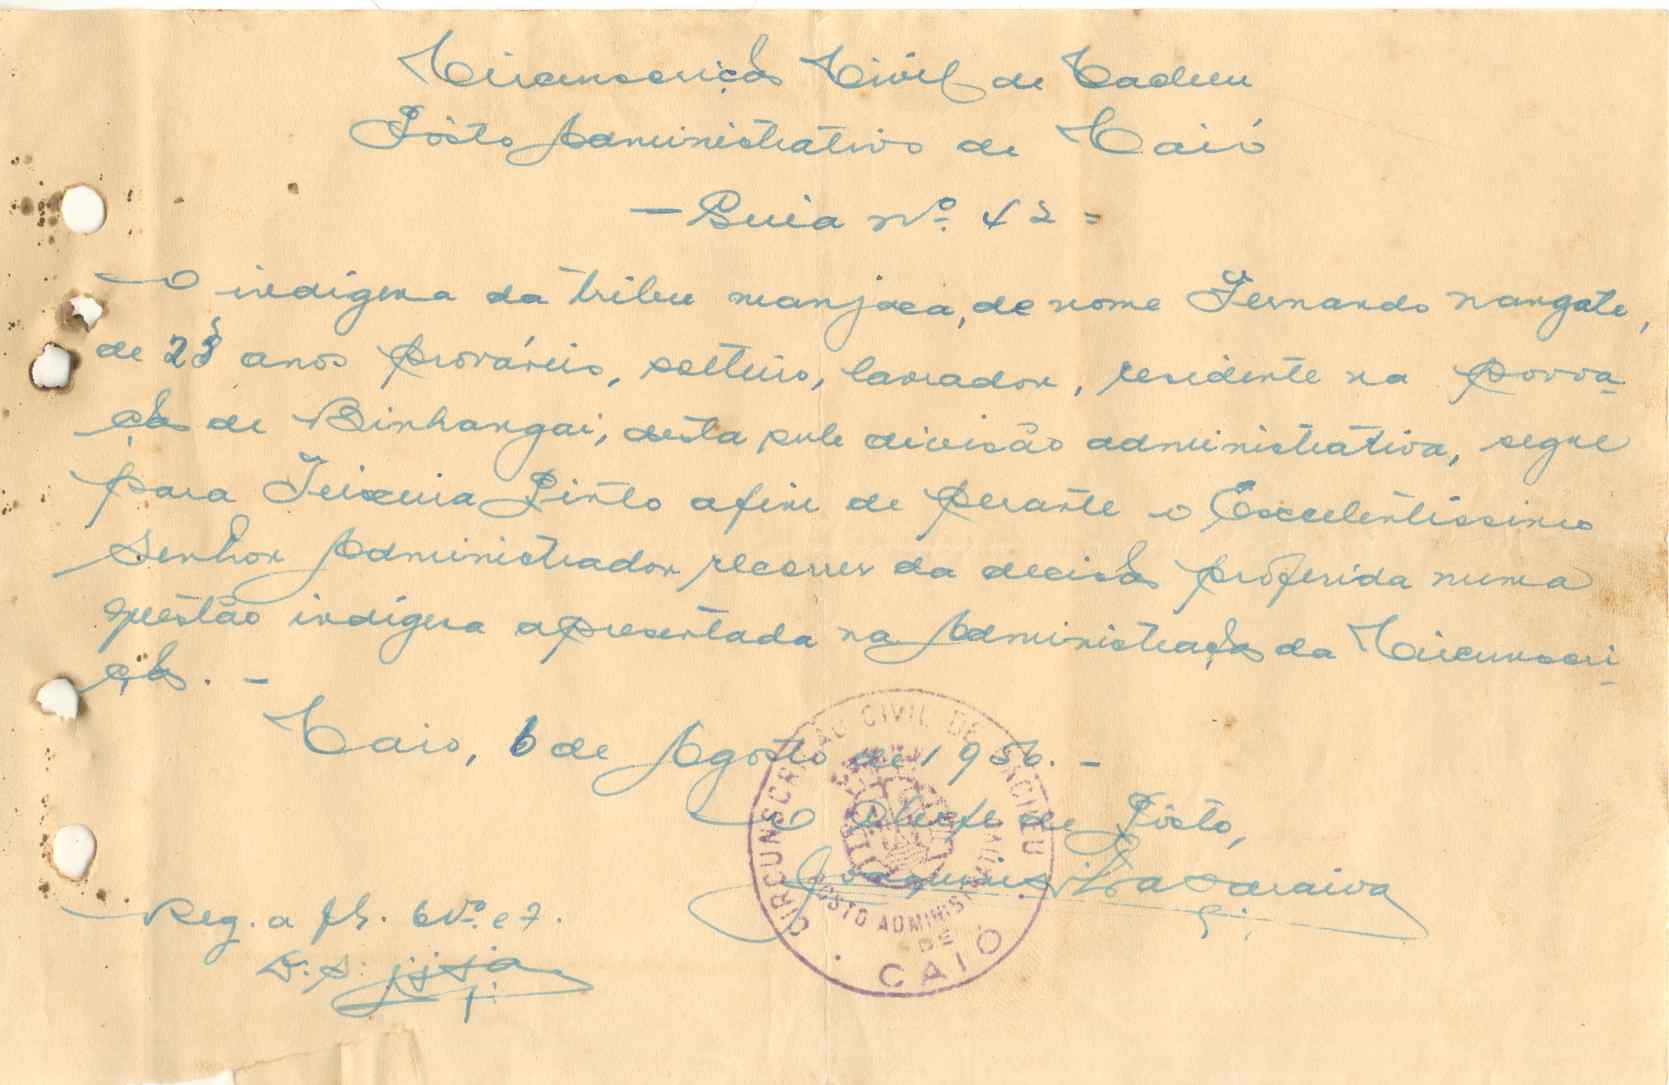 Circunscrição Civil de Cacheu
Pôsto Administrativo de Caió
— Guia Nº 42 =
O indigena da tribu manjaca, de nome Fernando Nangate,
de 23 anos prováveis, solteiro, lavrador, residente na povoa-
ção de Binhangai, desta sub divisão administrativa, segue
para Teixeira Pinto afim de perante o Excelentissimo
Senhor Administrador recorrer da decisão proferida numa
questão indigena apresentada na Administração da Circunscri-
ção. —
Caio, 6 de Agosto de 1956. —
O Chefe de Pôsto,
Saraiva
Reg. a fls. 6 vº e 7.
CIRCUNSCRIÇÃO CIVIL DE CACHEU
POSTO ADMINISTRATIVO
DE
CAIO